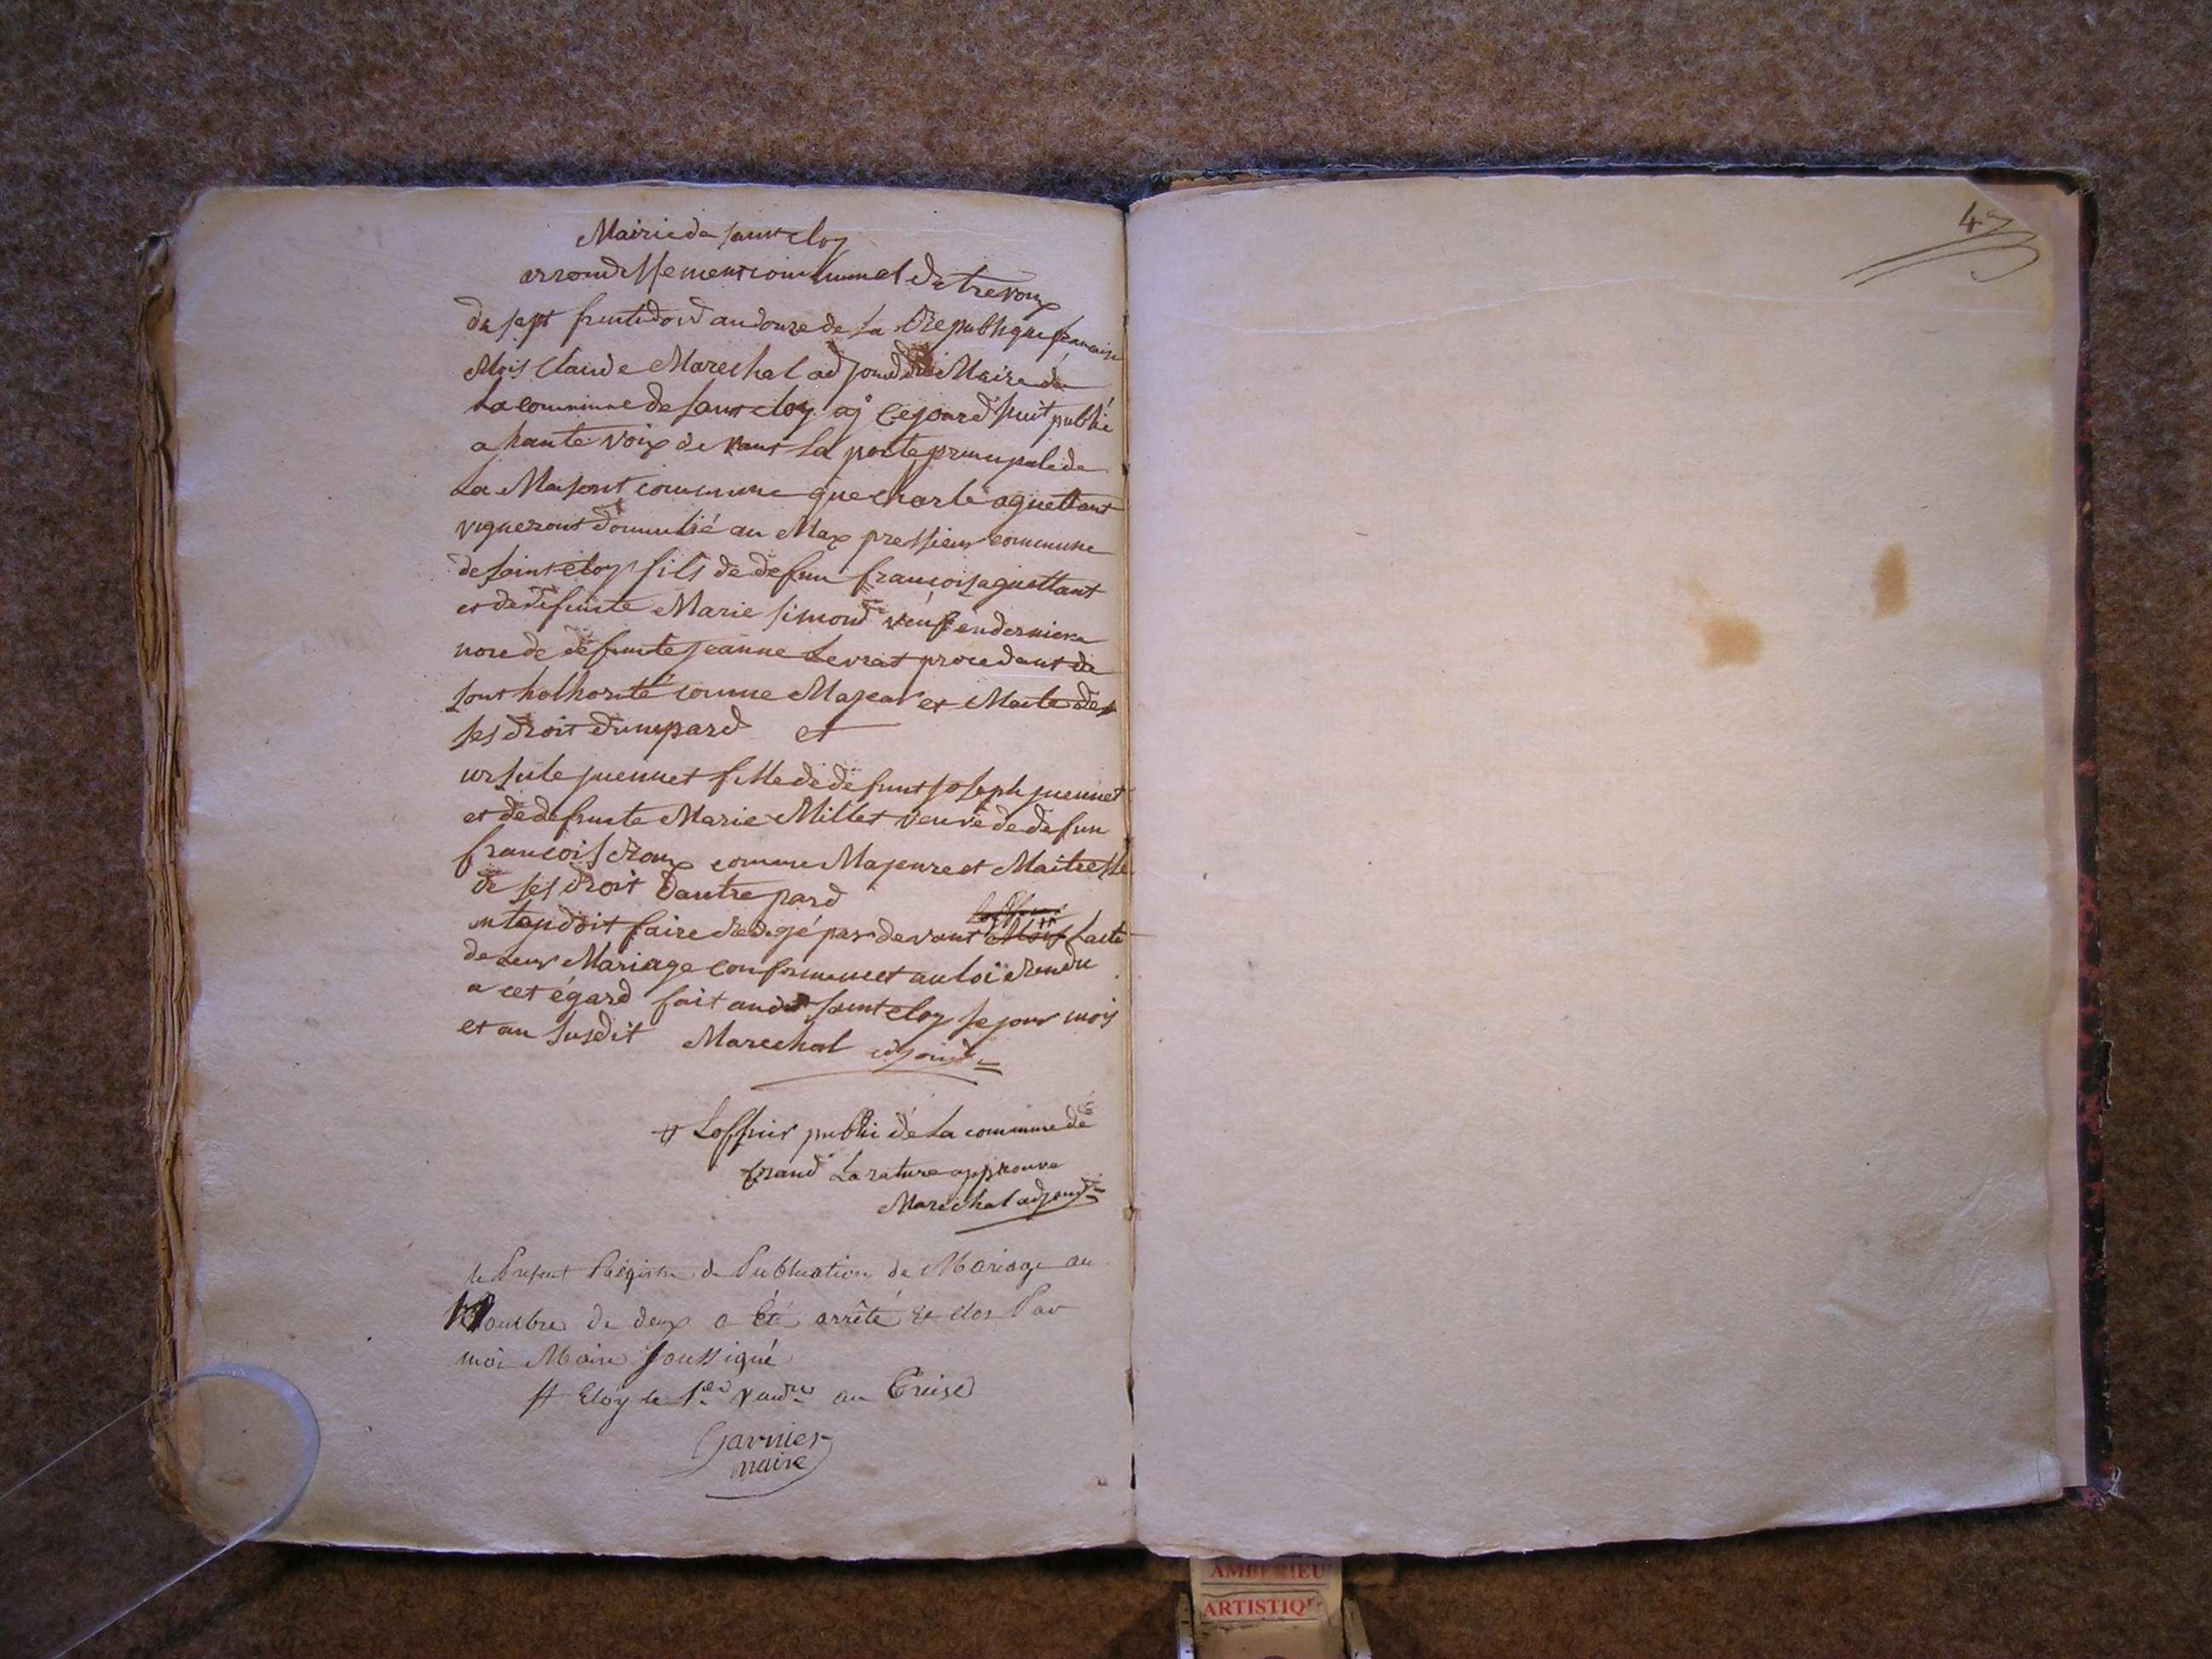 Mairie de saint eloy
arrondissement communal de trevoux
du sept fructidord an douze de La Republique francaise
Mois Claude Marechal adjoind du Maire de
La commune de saint eloy aÿ Cejourd'huit publié
a hante voix devant la porte principale de
La Maisont commune que charle aguettant
vignerons domicilié au Max pressieux commune
de saint eloy fils de defun françois aguettant
et de defunte Marie simond veuf en derniere
nore de defunte jeanne Levrat procedant de
sont hothorité comme Majeur et Maite de
ses droit d'unepard et
ursule juennet fille de defunt joseph juennet
et de defunte Marie Millet veuve de defun
françois Roux comme Majeure et Maitresse
de ses droit dautre pard
entendoit faire Redigé par devant Mois Lacte
de Leur Mariage conformemet au loi Rendu
a cet égard fait audit saint eloy se jour mois
et an susdit Marechal adjoind
# Loffiier publi de La commune de
Crand La rature approuve
Marechal adjoind
le Present Régistre de Publication de Mariage au
Nombre de deux a été arrêté & clos Par
moi Maire soussigné
St Eloy le 1er vend.re an Treise
Garnier
maire
4
AMBERIEU
ARTISTIQ